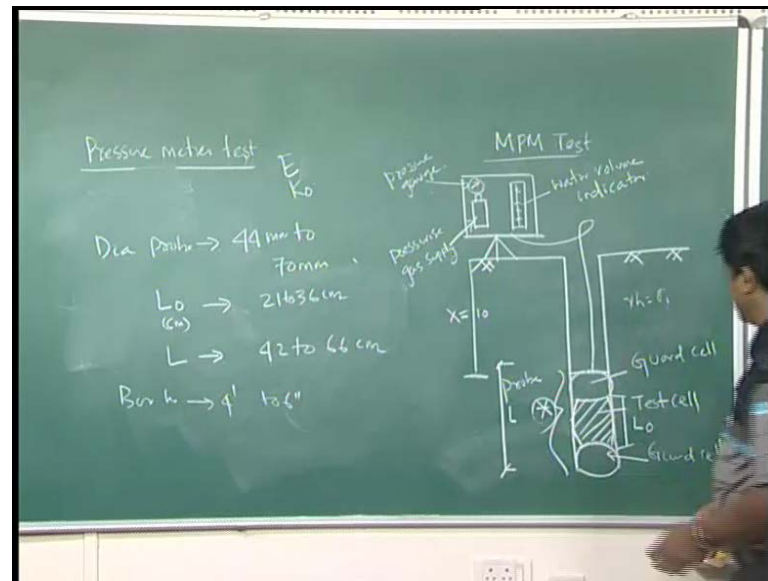 Pressure meter test
E
K0
Dia probe → 44mm to
70mm
L0 → 21to36cm
(cm)
L → 42 to 66 cm
4' to 6"
MPM Test
pressure
gauge
water volume
indicator
gas supply
X= 10
Guard cell
probe
L
Test cell
L0
Guard cell